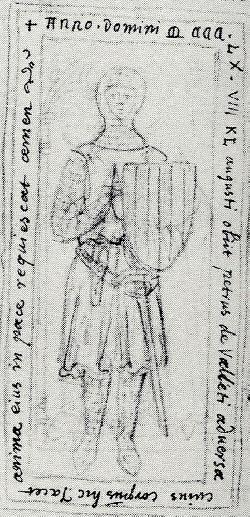 + Anno · Domini M CCC ·
LX · VIII KL augusti obiit petrus de Valleti aduersa
cuius corpus hic Jacet
anima eius in pace requiescat amen